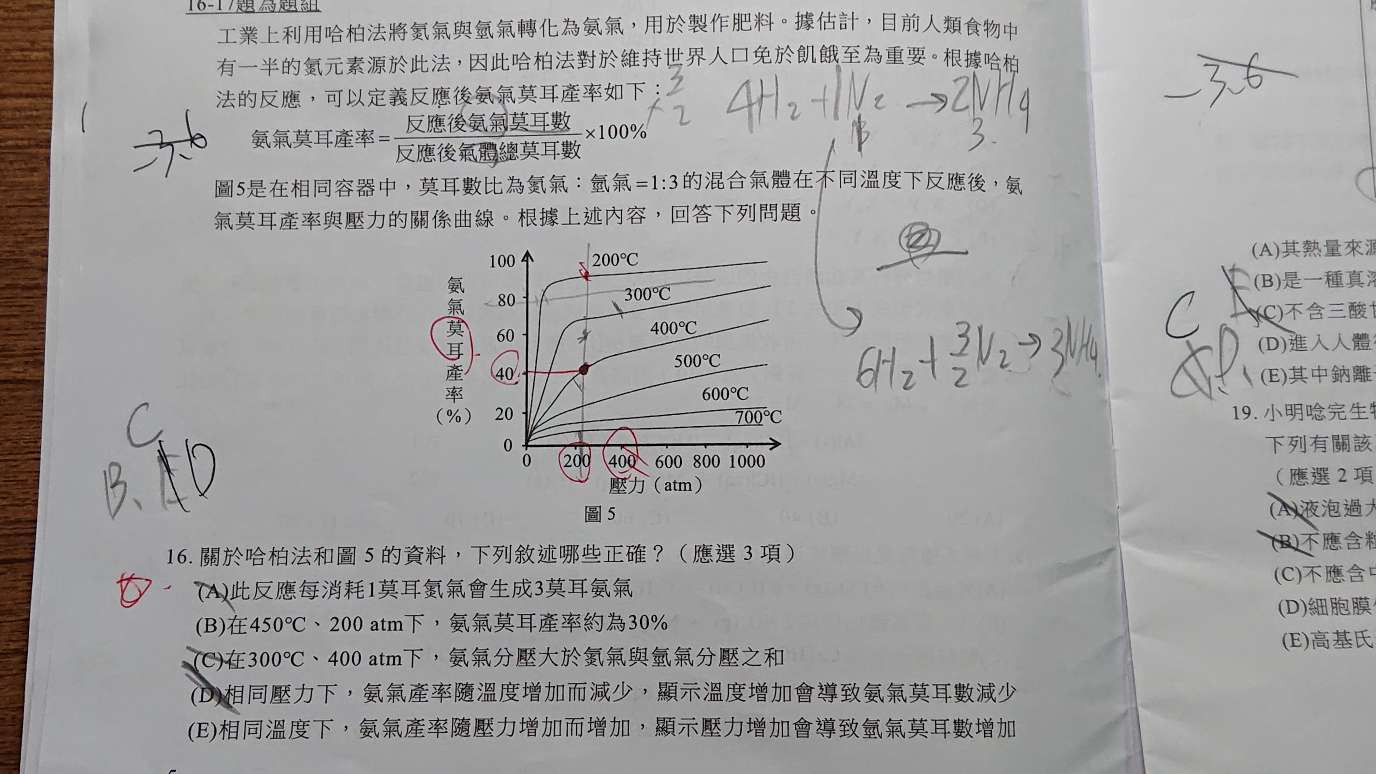 16-17題為題組
工業上利用哈柏法將氮氣與氫氣轉化為氨氣，用於製作肥料。據估計，目前人類食物中
有一半的氮元素源於此法，因此哈柏法對於維持世界人口免於飢餓至為重要。根據哈柏
法的反應，可以定義反應後氨氣莫耳產率如下：
3/2
4H₂+1N₂→2NH4
3.
-3.6
氨氣莫耳產率=反應後氨氣莫耳數/反應後氣體總莫耳數×100%
圖5是在相同容器中，莫耳數比為氮氣：氫氣=1:3的混合氣體在不同溫度下反應後，氨
氣莫耳產率與壓力的關係曲線。根據上述內容，回答下列問題。
氨氣莫耳產率(%)
100
80
60
40
20
0
200℃
300℃
400℃
500℃
600℃
700℃
0 200 400 600 800 1000
壓力（atm）
圖5
6H₂+3/2N₂→3NH4
C
B、D
16. 關於哈柏法和圖 5 的資料，下列敘述哪些正確？（應選 3 項）
(A)此反應每消耗1莫耳氮氣會生成3莫耳氨氣
(B)在450℃、200 atm下，氨氣莫耳產率約為30%
(C)在300℃、400 atm下，氨氣分壓大於氮氣與氫氣分壓之和
(D)相同壓力下，氨氣產率隨溫度增加而減少，顯示溫度增加會導致氨氣莫耳數減少
(E)相同溫度下，氨氣產率隨壓力增加而增加，顯示壓力增加會導致氫氣莫耳數增加
-3.6
(A)其熱量來源
(B)是一種真溶
(C)不含三酸甘
(D)進入人體後
(E)其中鈉離子
C
19. 小明唸完生物
下列有關該
（應選 2 項
(A)液泡過大
(B)不應含粒
(C)不應含中
(D)細胞膜
(E)高基氏